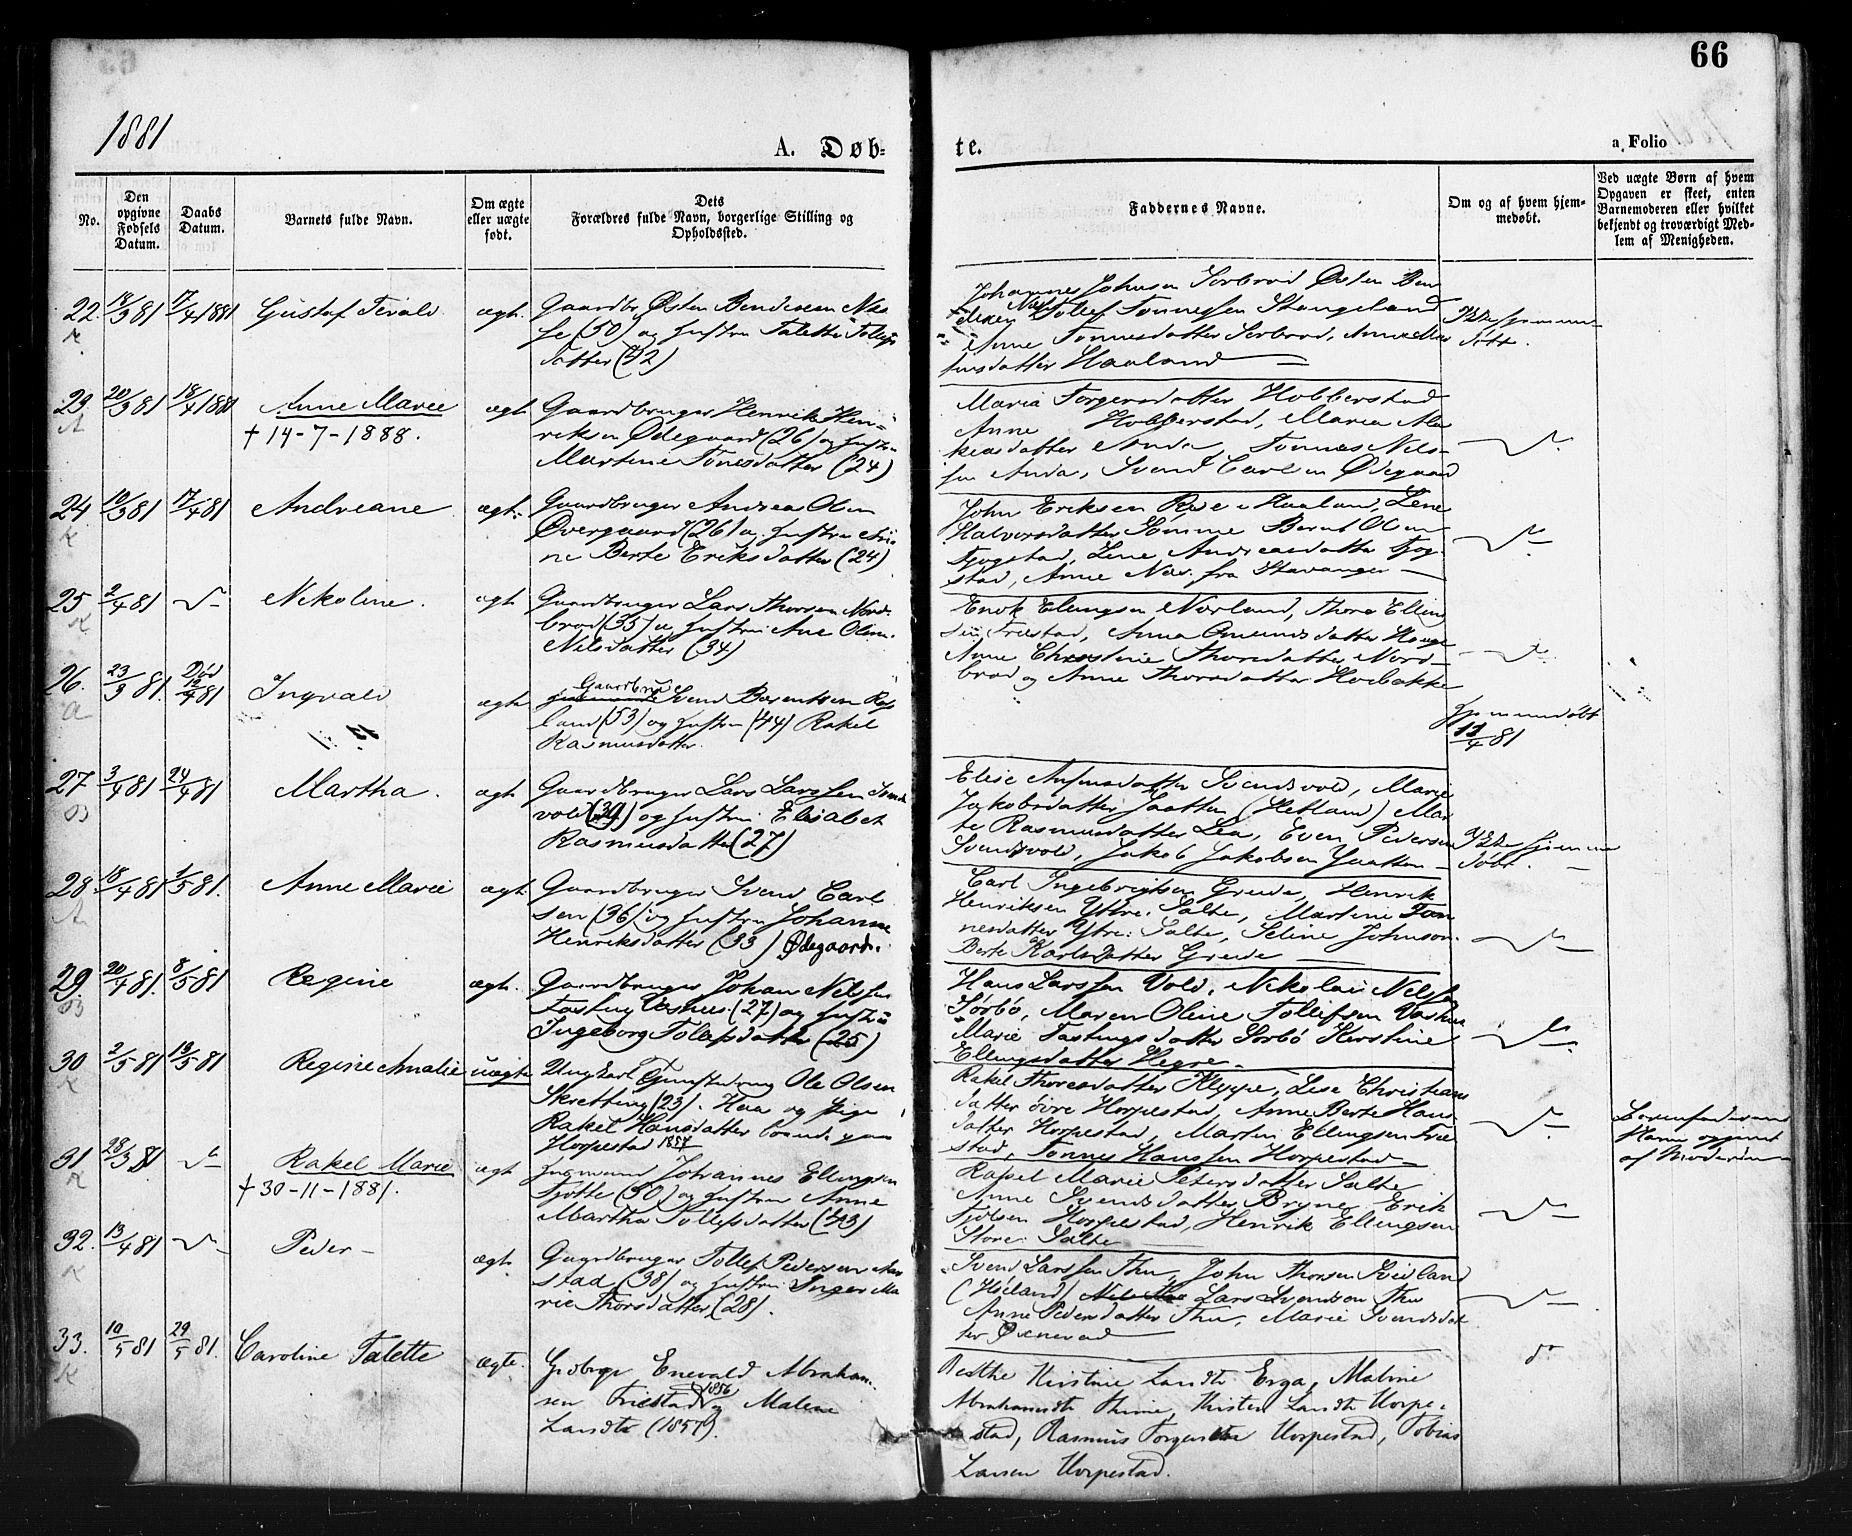 66
1881
A. Døb-
te.
a. Folio
No.
Den
opgivne
Fødsels
Datum.
Daabs
Datum.
Barnets fulde Navn.
Om ægte
eller uægte
født.
Dets
Forældres fulde Navn, borgerlige Stilling og
Opholdssted.
Faddernes Navne.
Om og af hvem hjem-
medøbt.
Ved uægte Børn af hvem
Opgaven er skeet, enten
Barnemoderen eller hvilket
bekjendt og troværdigt Med-
lem af Menigheden.
22. 18/3 81 17/4 1881 Gustaf Tivald ægt. Gaardbr. Østen Bendixsen Næs-
he (30) og hustru Talette Tollefs
datter (42)
Johannes Johnsen Sørbrød Østen Ben
dixen Næs Tollef Tønnessen Stangeland
Anne Tønnesdatter Sørbrød, Anne
datter Haaland
Ikke hjemme-
døbt.
23. 20/3 81 18/4 1881 Anne Marie ægt
† 14-7-1888.
Gaardbruger Henrik Hen-
riksen Ødegaard (26) og hustru
Martine Tønesdatter (24)
Maria Torgersdatter Hobberstad
Anne Hobberstad, Maria
datter Anda, Tønnes Nils-
sen Anda, Svend Carlsen Ødegaard
24 10/3 81 17/4 81 Andreane ægt. Gaardbruger Andreas Olsen
Øvergaard (26) og hustru
Berte Eriksdatter (24)
John Eriksen Haaland, Lene
Halvorsdatter Sømme Bernt Olsen
Fjogstad, Lene Andreasdatter Fjog-
stad, Anne Næs fra Stavanger
25 2/4 81 Nikoline ægt Gaardbruger Lars Thorsen Nord-
brød (35) og hustru Ane Olene
Nilsdatter (34)
Enok Elingsen Norland, Thore Ellin
sen Friestad, Anna Omundsdatter Hauge
Anne Christine Thorsdatter Nord-
brød og Anne Thorsdatter Høibakke
26. 23/3 81. Død 12/4 81 Ingvald ægte Gaardbr. Svend Berentsen
land (53) og hustru (44) Rakel
Rasmusdatter.
hjemmedøbt
11/4 81
27 3/4 81 24/4 81 Martha. ægt Gaardbruger Lars Larssen
vold (39) og hustru Elisabet
Rasmusdatter (27)
Elise datter Svendsvold, Marie
Jakobsdatter Taatten (Hetland) Mar-
te Rasmusdatter Lea, Even Pedersen
Svendsvold, Jakob Jakobsen Taatten
Ikke hjemme
døbt.
28 18/4 81 1/5 81. Anne Marie ægt. Gaardbruger Svend Carl
sen (36) og hustru Johanne
Henriksdatter (33) Ødegaard.
Carl Ingebrigtsen Grude, Henrik
Henriksen Yttre Salte, Martine Tøn
nesdatter Yttre Salte, Seline Johnson
Berte Karlsdatter Grude
29 20/4 81. 8/5 81 Regine ægt. Gaardbruger Johan Nilssen
Fasting Vasnes (27) og hustru
Ingeborg Tollefsdatter (25)
Hans Larssen Vold, Nikolai Nilssen
Sørbø, Maren Oline Tollefsen
Marie Fastingsdatter Sørbø Kerstine
Ellingsdatter Hegre
30 2/5 81 13/5 81 Regine Amalie uægte Ungkarl Ole Olsen
Skretting (23). Haa og pige
Rakel Hansdatter
Horpestad 1857
Rakel Thoresdatter Kleppe, Lise Christians
datter øvre Horpestad, Anne Berte Hans-
datter Horpestad, Marten Ellingsen Frie
stad, Tønnes Hanssen Horpestad
Barnefaderens
Navn opgivet
af Moderen
31 28/3 81 Rakel Marie ægt
† 30-11-1881.
Johannes Ellingsen
Tjøtte (30) og hustru Anne
Martha Tollefsdatter (43)
Rakel Marie Petersdatter Salte
Anne Svendsdatter Bryne, Erik
Horpestad, Henrik Ellingsen
Store Salte
32. 13/4 81 Peder ægt. Gaardbruger Tollef Pedersen
stad (38) og hustru Inger Ma-
rie Thorsdatter (28).
Svend Larssen Thu, John Thorsen
(Høiland) Lars Svendsen Thu
Anne Pedersdatter Thu, Marie Svendsdat
ter Øxnevad
33. 10/5 81 29/5 81. Caroline Talette ægte. Grdbrgr Enevald Abraham-
sen Friestad 1856 og Malene
Larsdtr (1857).
Berthe Kirstine Larsdtr Erga, Maline
Abrahamsdtr Thime, Kirsten Larsdtr Horpe-
stad, Rasmus Horpestad, Tobias
Larsen Horpestad.
do